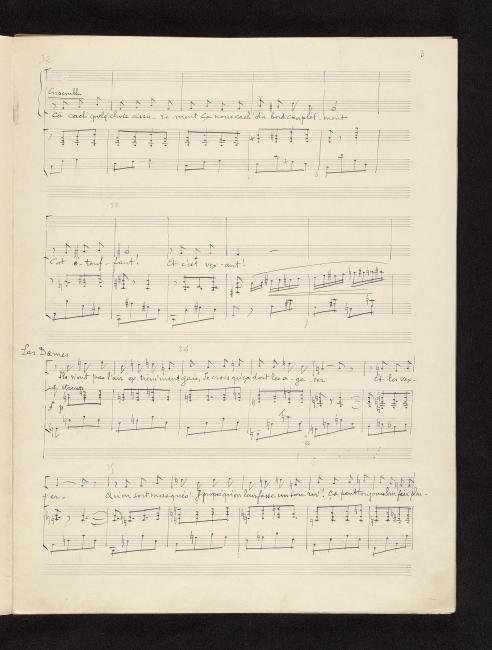 32
3
Ensemble
Ça cach' quelq' chose assu-ré-ment Ça nous cach' du bord complèt'-ment
33
C'est é-touf-fant! Et c'est vex-ant!
Les Dames
34
Ils n'ont pas l'air ex-trêm'ment gais, Je crois qu' ça doit les a-ga-cer Et les vex-
f p
35
er. Qu'on soit masqués! J' propos' qu'on leur fasse un sou-rir'! Ça peut toujours leur fair' plai-